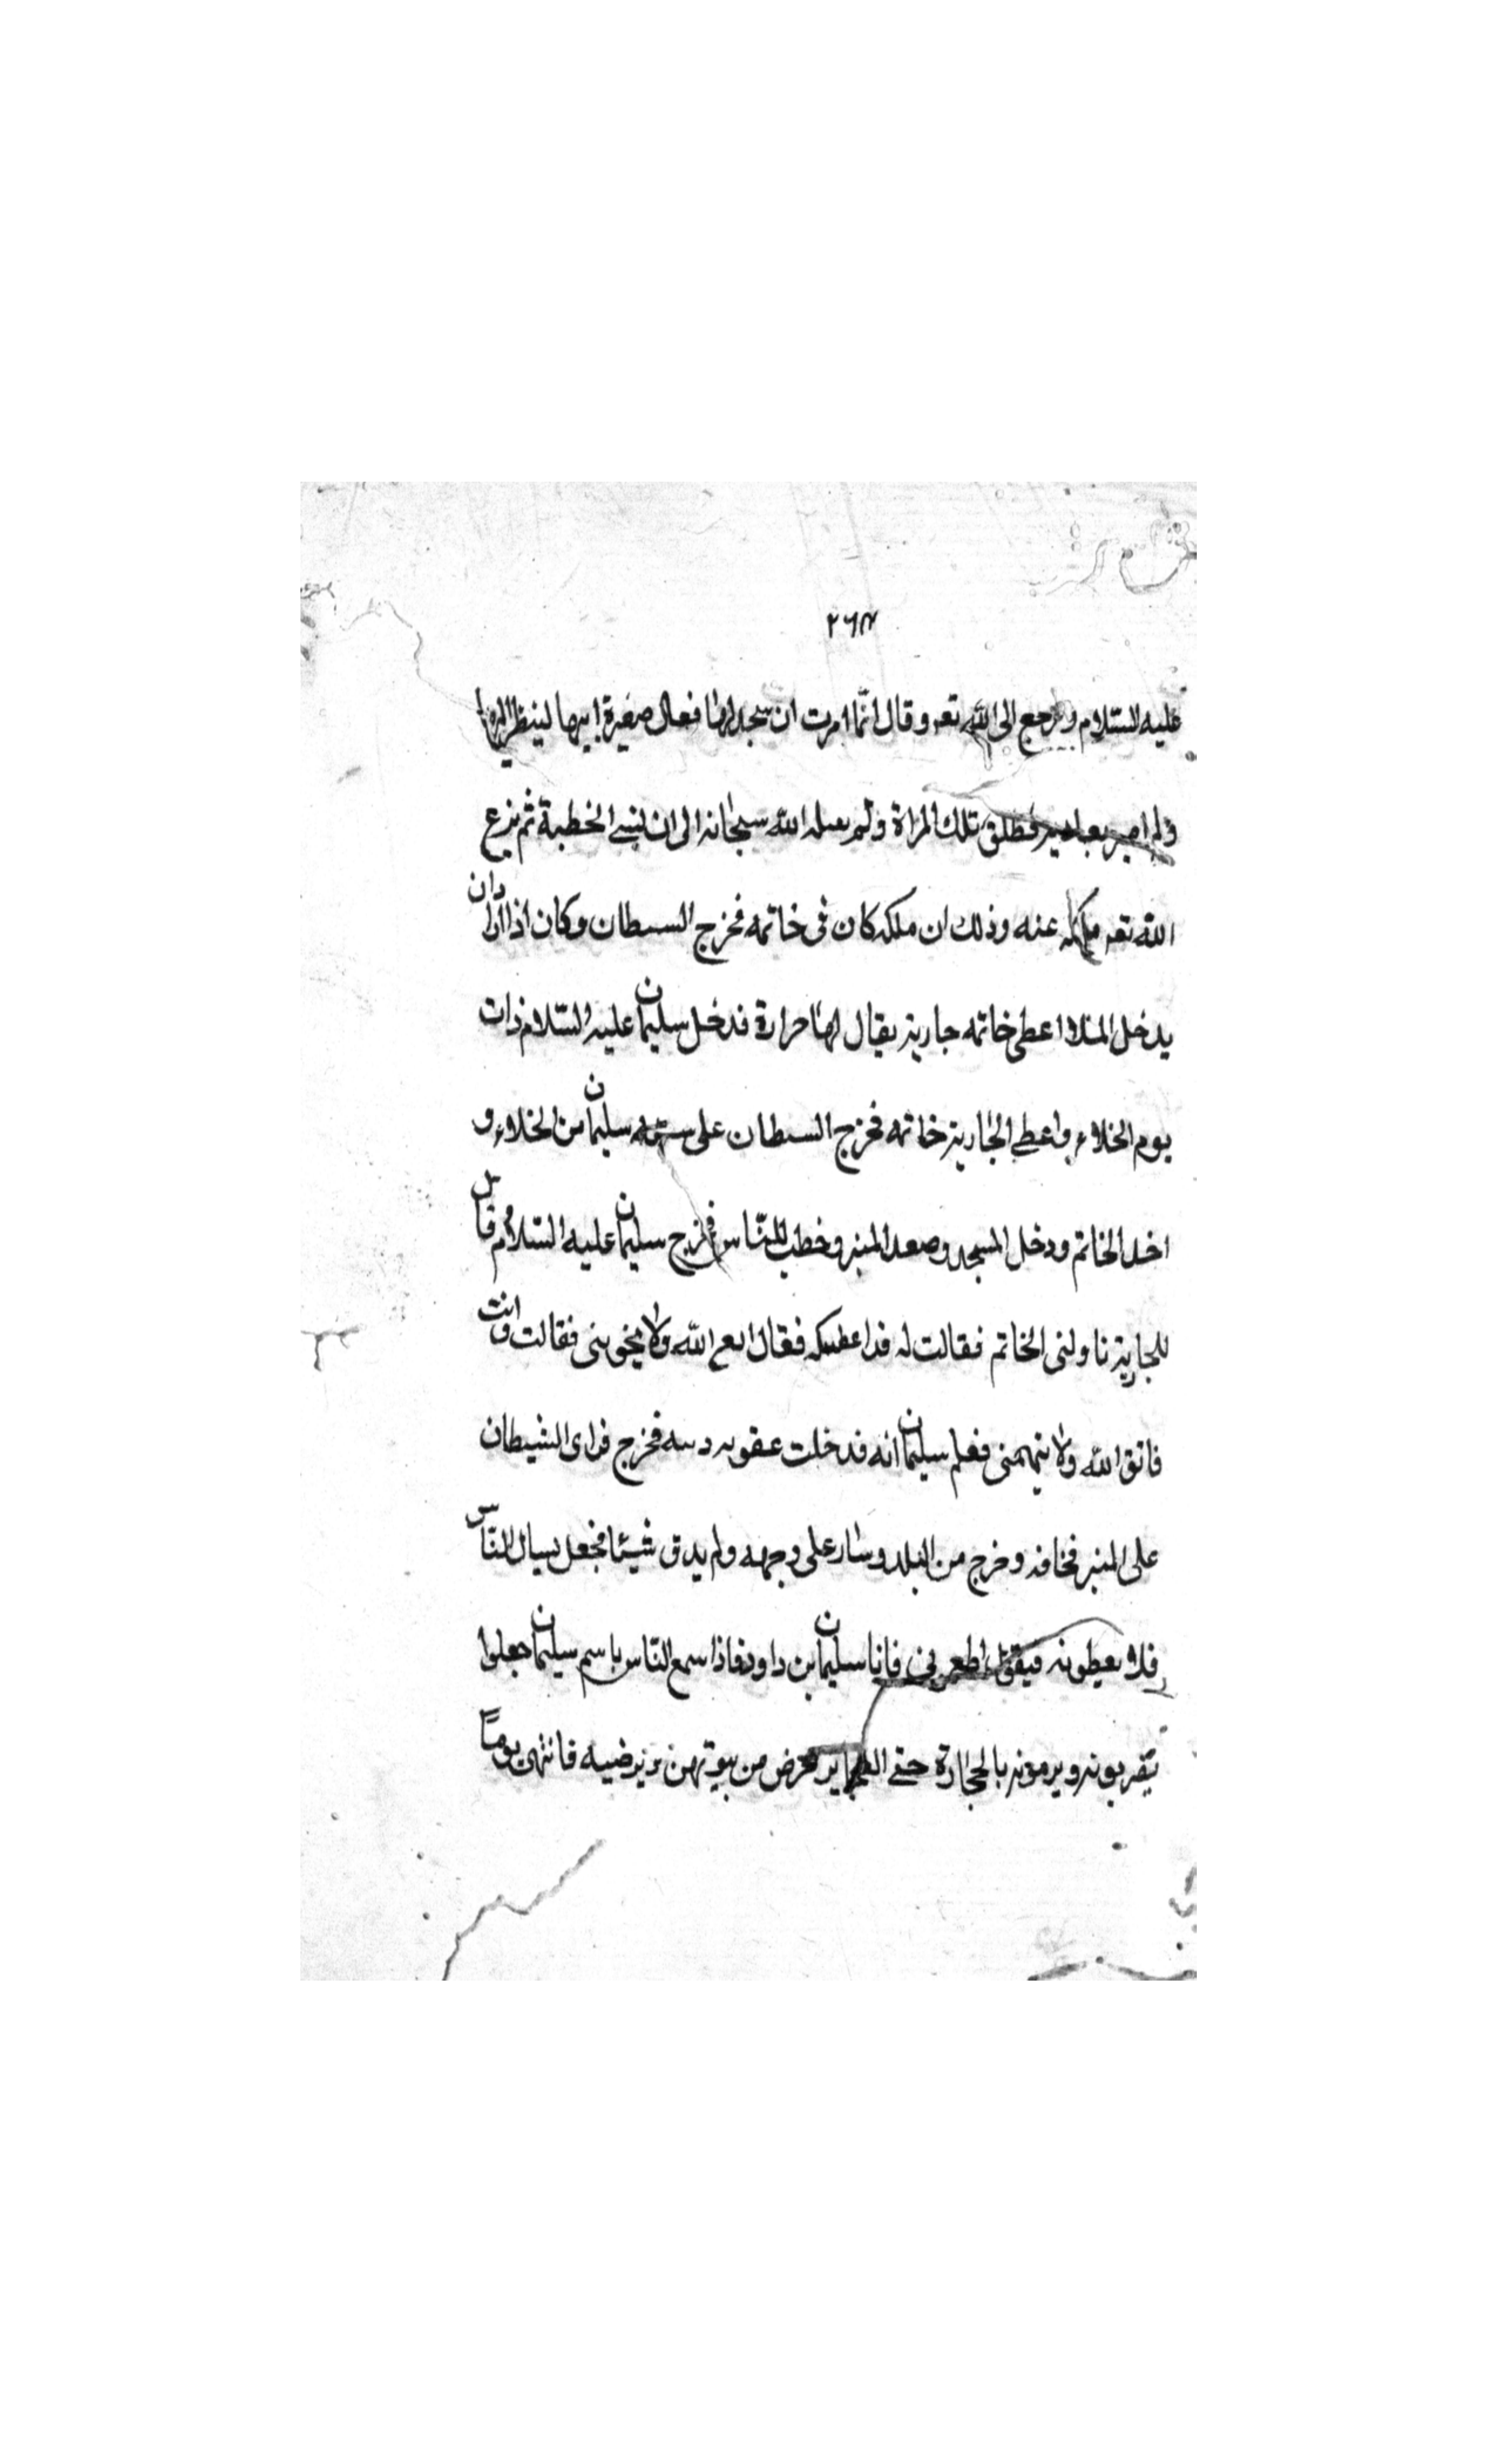 ٢٦٣
عليه السّلام ورجع الى الله تعه وقال انّما امرت ان يتخذ لها مثال صفة ابيها لينظر اليها
ولم امر فطلق تلك المراة ولم يمهله الله سبحانه الى ان نسي الخطية ثم نزع
الله تعه ملكه عنه وذلك ان ملكه كان فى خاتمه فخرج السطان وكان اذا ارادان
يدخل الخلاء اعطى خاتمه جارية يقال لها حرارة فدخل سليمان عليه السّلام ذات
يوم الخلاء واعطى الجارية خاتمه فخرج السطان على سليمان من الخلاء و
اخد الخاتم ودخل المسجد وصعد المنبر وخطب للنّاس فخرج سليمان عليه السّلام وقال
للجارية ناولنى الخاتم فقالت له قد اعطيتكه فقال اتق الله ولا تخونى فقالت وانت
فاتق الله ولا تتهمنى فعلم سليمان انه قد دخلت عقوبه فخرج فراى الشيطان
على المنبر فخافه وخرج من البلد وسار على وجهه ولم يدق شيئا فجعل يسال النّاس
فلا يعطونه فيقول اطعمونى فانا سليمان بن داود فاذا سمع النّاس باسم سليمان جعلوا
يضربونه ويرمونه بالحجارة حتى العجايز يخرجن من بيوتهن يرضيه فانتهى يومًا